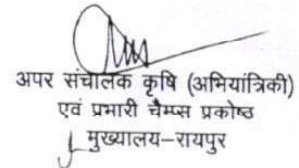 अपर संचालक कृषि (अभियांत्रिकी)
एवं प्रभारी चैम्प्स प्रकोष्ठ
मुख्यालय-रायपुर